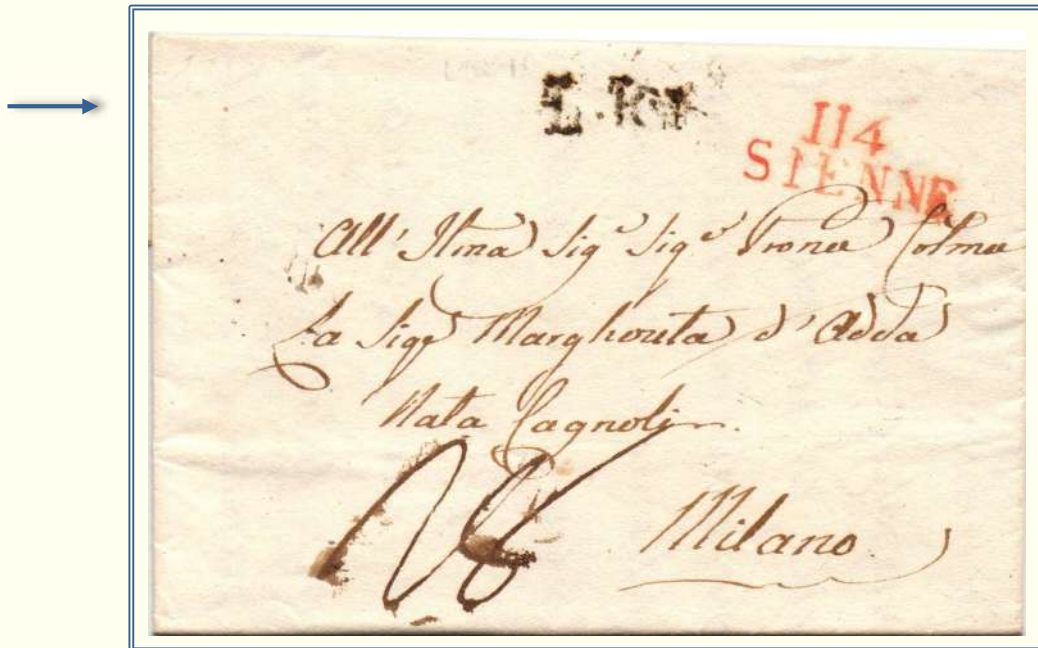 114
SIENNE
All' Ilma Sig.a Sig.a Prona Colma
La Sig.a Margherita d'Adda
Nata Cagnoli
26
Milano